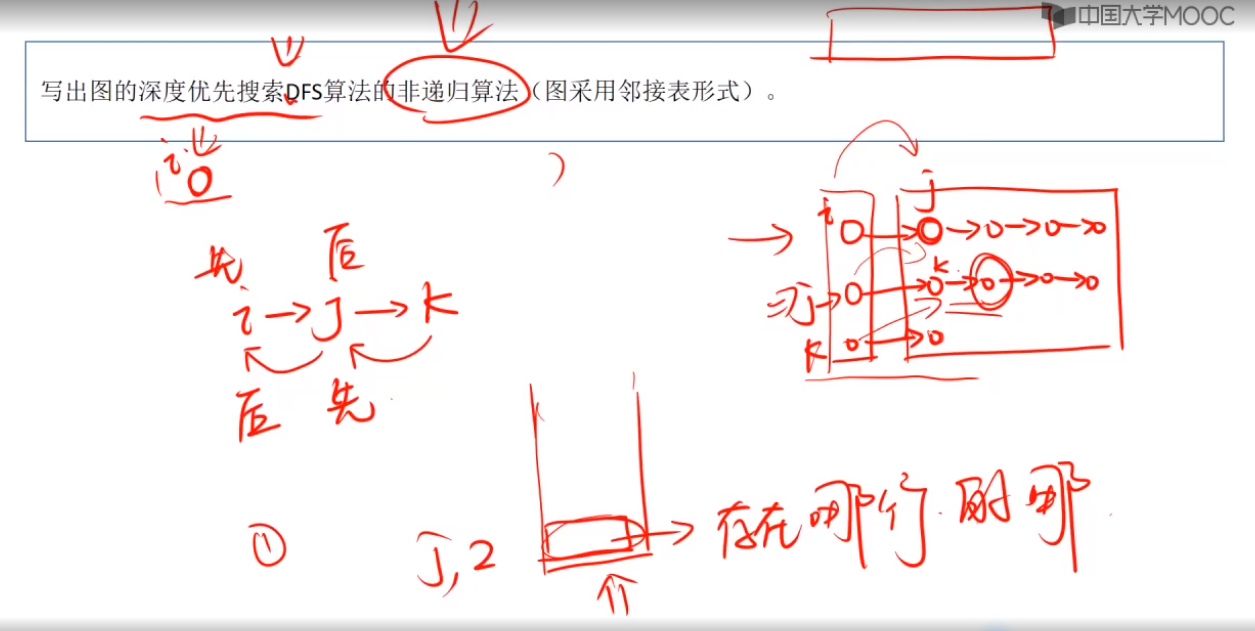 中国大学MOOC
写出图的深度优先搜索DFS算法的非递归算法（图采用邻接表形式）。
i
0
j
i
k
j
k
先 后
i → J → k
后 先
①
J, 2
存在哪行